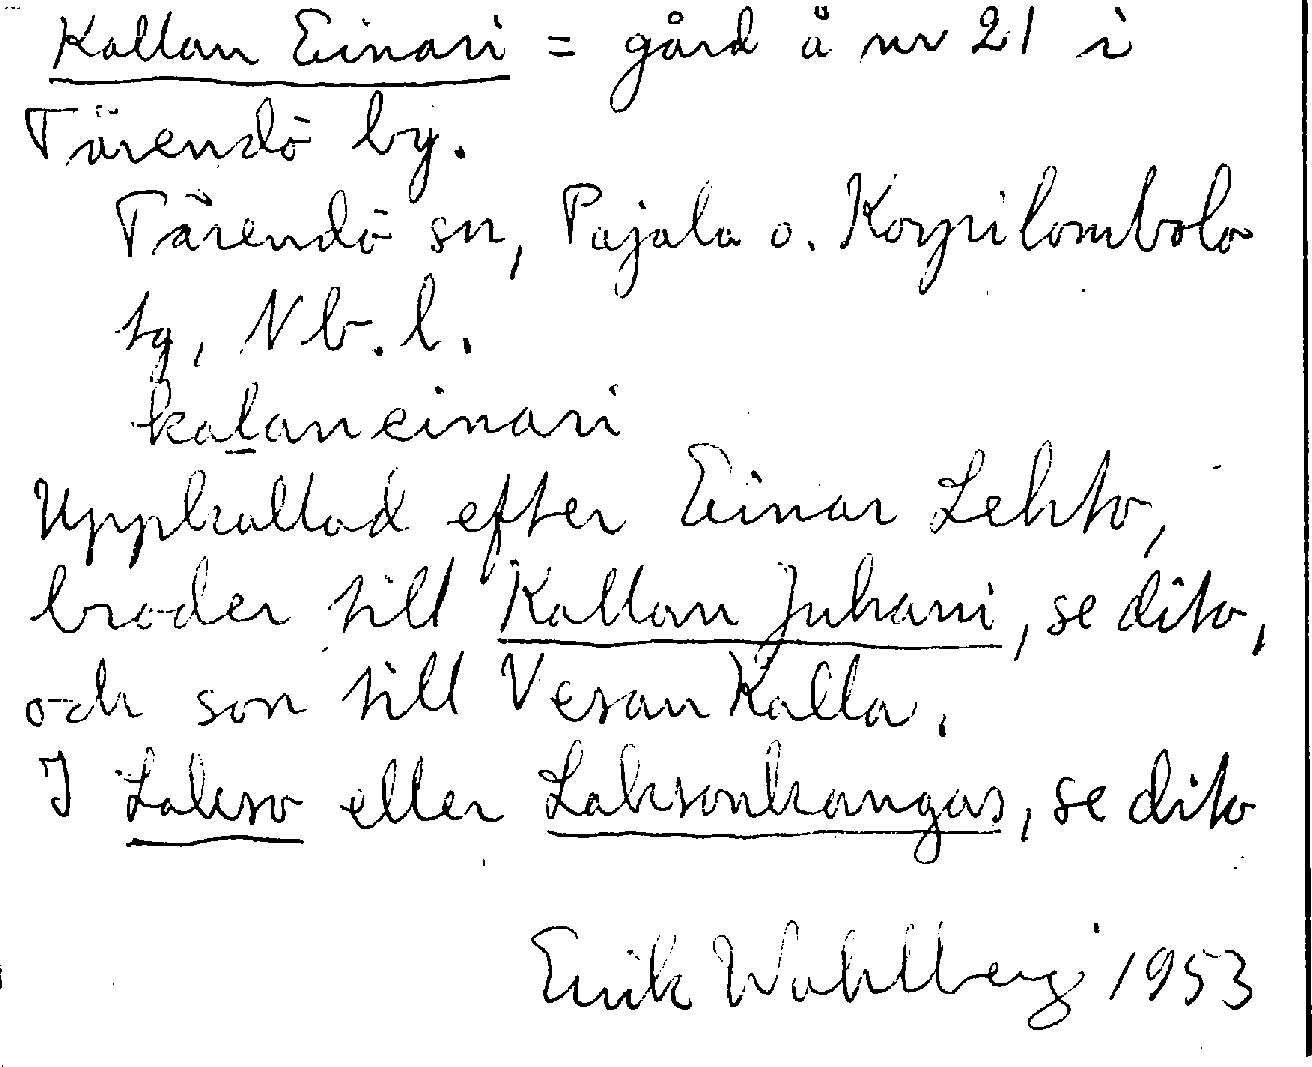 Kallan Einari = gård å nr 21 i
Tärendö by.
Tärendö sn, Pajala o. Korpilombolo
tg, Nb. l.
kalaneinari
Uppkallad efter Einar Lehto,
broder till Kallan Juhani, se dito,
och son till Vesan Kalla.
I Lakso eller Laksonkangas, se dito
Erik Wahlberg 1953